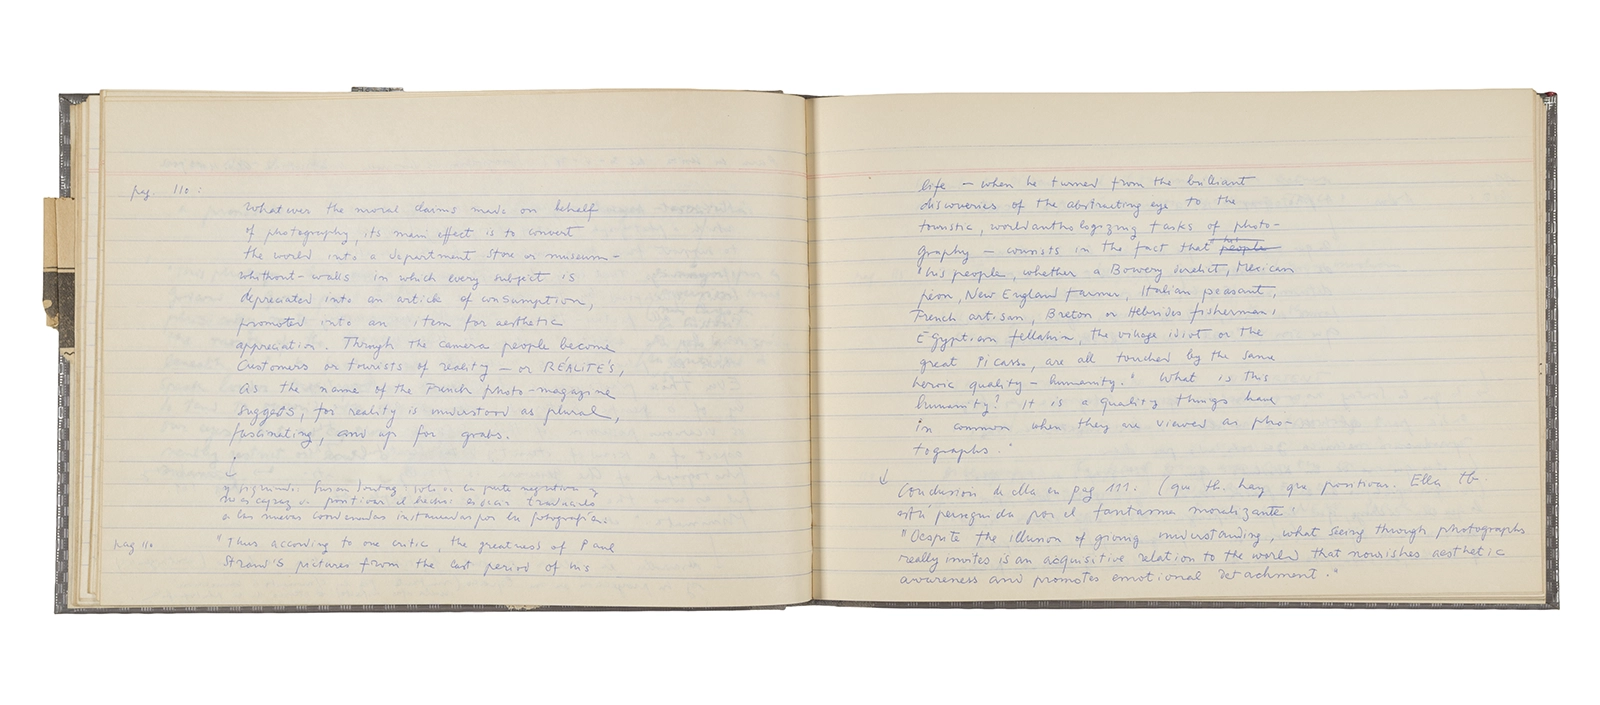 pag. 110:
Whatever the moral claims made on behalf
of photography, its main effect is to convert
the world into a department store or museum-
whithout-walls in which every subject is
depreciated into an article of consumption,
promoted into an item for aesthetic
appreciation. Through the camera people become
customers or tourists of reality — or RÉALITÉS,
as the name of the French photo-magazine
suggests, for reality is understood as plural,
fascinating, and up for grabs.
y Susan Sontag solo ve la parte negativa y
no es capaz de positivar el hecho: es decir traducirlo
a las nuevas coordenadas instauradas por la fotografía.
pag 110 "Thus according to one critic, the greatness of Paul
Strand's pictures from the last period of his
life — when he turned from the brilliant
discoveries of the abstracting eye to the
touristic, worldanthologizing tasks of photo-
graphy — consists in the fact that people
'his people, whether a Bowery derelict, Mexican
peon, New England farmer, Italian peasant,
French artisan, Breton or Hebrides fisherman,
Egyptian fellahin, the village idiot or the
great Picasso, are all touched by the same
heroic quality — humanity." What is this
humanity? It is a quality things have
in common when they are viewed as pho-
tographs."
Conclusión de ella en pag 111. (que tb. hay que positivar. Ella tb.
está perseguida por el fantasma moralizante:
"Despite the illusion of giving understanding, what seeing through photographs
really invites is an acquisitive relation to the world that nourishes aesthetic
awareness and promotes emotional detachment."